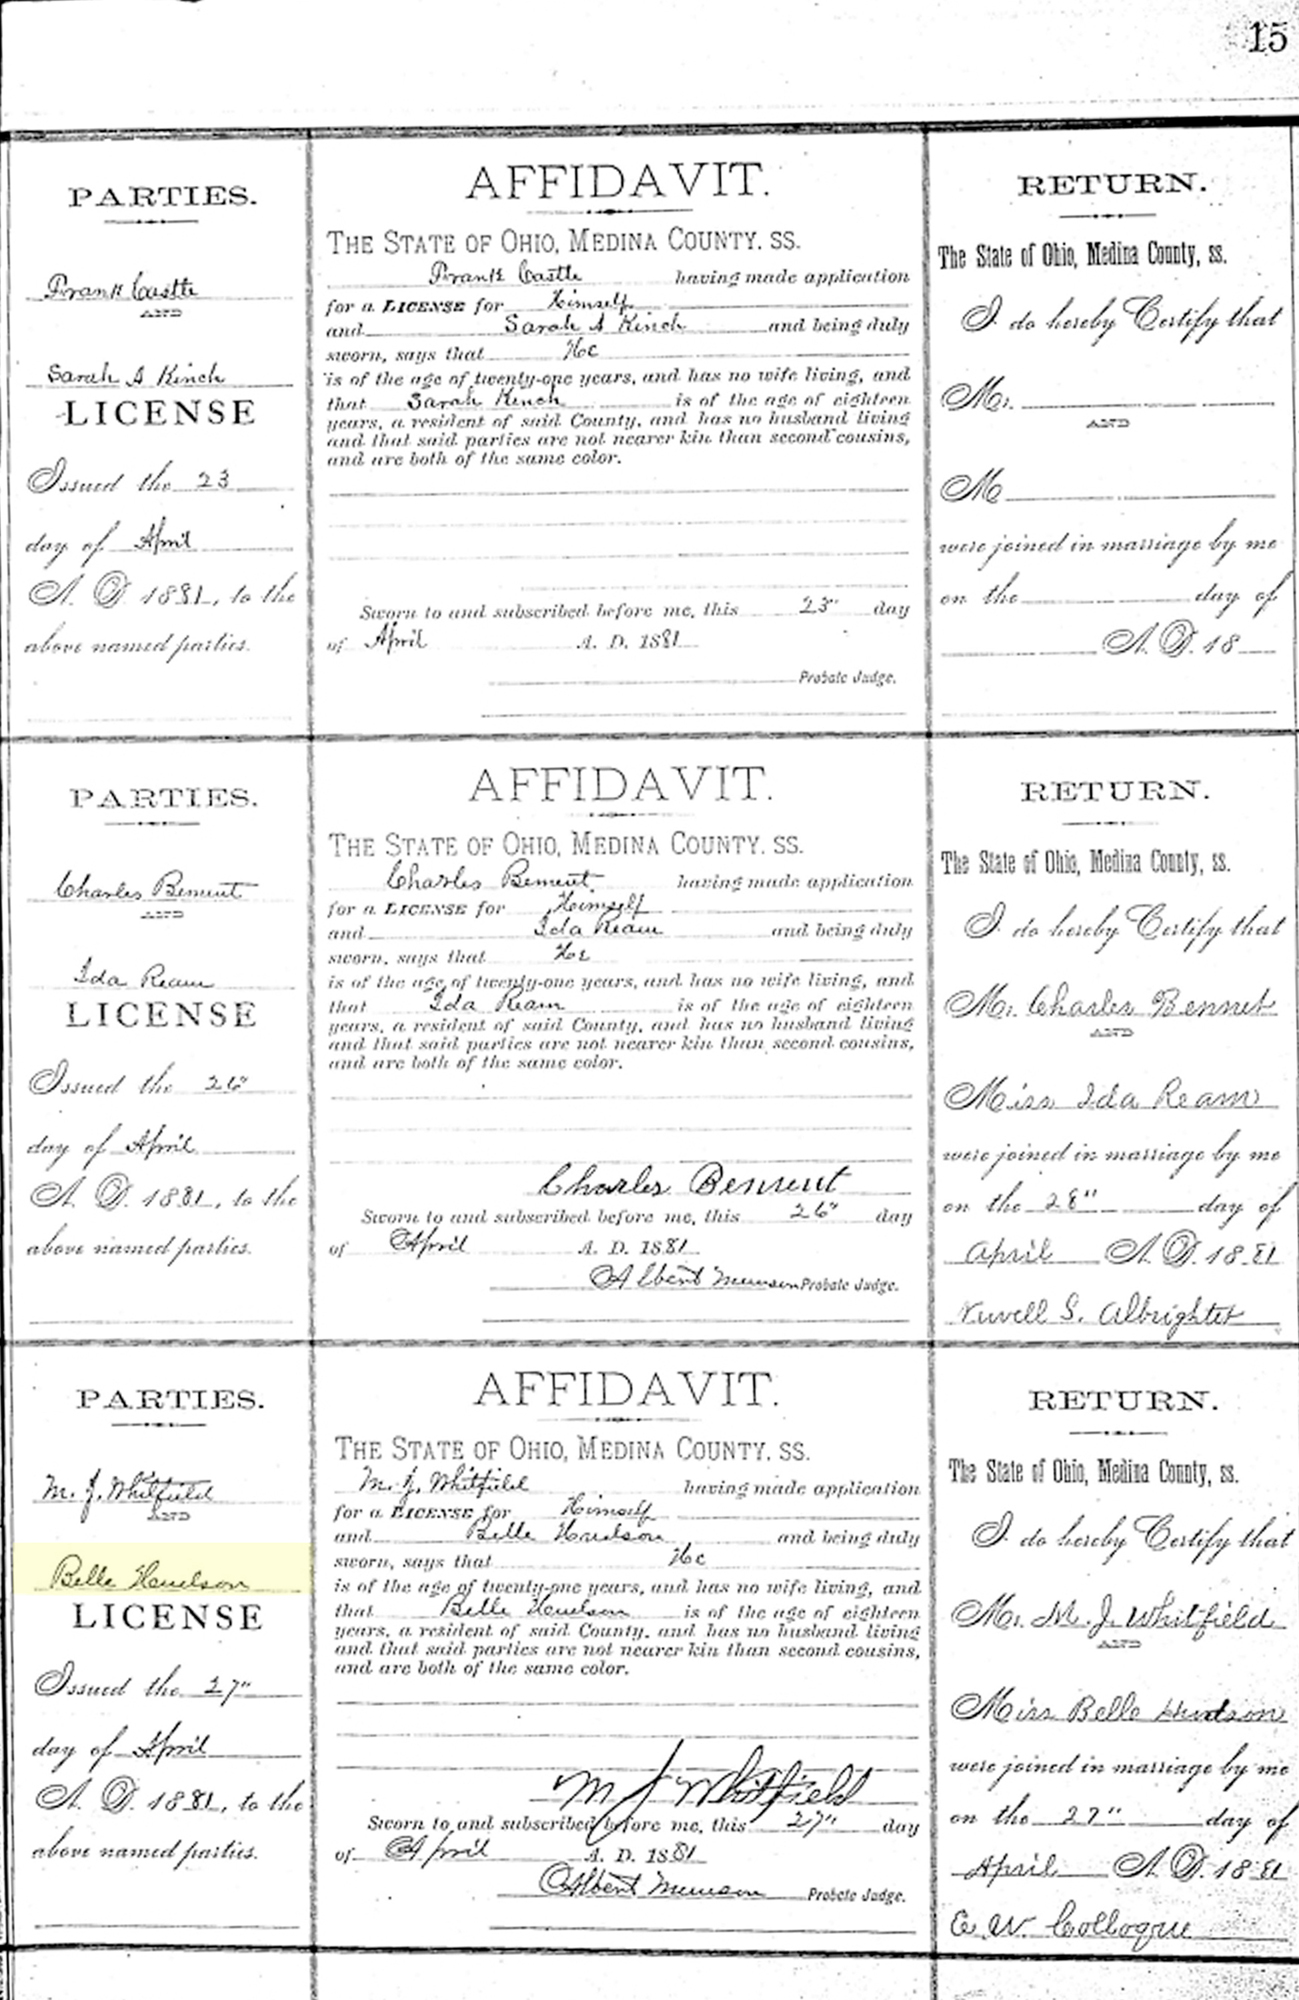 15
PARTIES.
Frank Castle
AND
Sarah A Kinch
LICENSE
Issued the 23
day of April
A. D. 1881, to the
above named parties.
AFFIDAVIT.
THE STATE OF OHIO, MEDINA COUNTY. SS.
Frank Castle having made application
for a LICENSE for Himself
and Sarah A Kinch and being duly
sworn, says that He
is of the age of twenty-one years, and has no wife living, and
that Sarah Kinch is of the age of eighteen
years, a resident of said County, and has no husband living
and that said parties are not nearer kin than second cousins,
and are both of the same color.
Sworn to and subscribed before me, this 23" day
of April A. D. 1881
Probate Judge.
RETURN.
The State of Ohio, Medina County, ss.
I do hereby Certify that
Mr.
AND
M
were joined in marriage by me
on the day of
A. D. 18
PARTIES.
Charles Bement
AND
Ida Ream
LICENSE
Issued the 26"
day of April
A. D. 1881, to the
above named parties.
AFFIDAVIT.
THE STATE OF OHIO, MEDINA COUNTY. SS.
Charles Bement having made application
for a LICENSE for Himself
and Ida Ream and being duly
sworn, says that He
is of the age of twenty-one years, and has no wife living, and
that Ida Ream is of the age of eighteen
years, a resident of said County, and has no husband living
and that said parties are not nearer kin than second cousins,
and are both of the same color.
Charles Bement
Sworn to and subscribed before me, this 26" day
of April A. D. 1881
Albert Munson Probate Judge.
RETURN.
The State of Ohio, Medina County, ss.
I do hereby Certify that
Mr. Charles Bennet
AND
Miss Ida Ream
were joined in marriage by me
on the 28" day of
April A. D. 1881
S. Albright
PARTIES.
M. J. Whitfield
AND
Belle
LICENSE
Issued the 27"
day of April
A. D. 1881, to the
above named parties.
AFFIDAVIT.
THE STATE OF OHIO, MEDINA COUNTY. SS.
M. J. Whitfield having made application
for a LICENSE for Himself
and Belle and being duly
sworn, says that He
is of the age of twenty-one years, and has no wife living, and
that Belle is of the age of eighteen
years, a resident of said County, and has no husband living
and that said parties are not nearer kin than second cousins,
and are both of the same color.
M J Whitfield
Sworn to and subscribed before me, this 27" day
of April A. D. 1881
Albert Munson Probate Judge.
RETURN.
The State of Ohio, Medina County, ss.
I do hereby Certify that
Mr. M. J. Whitfield
AND
Miss Belle Hudson
were joined in marriage by me
on the 27" day of
April A. D. 1881
E. W.